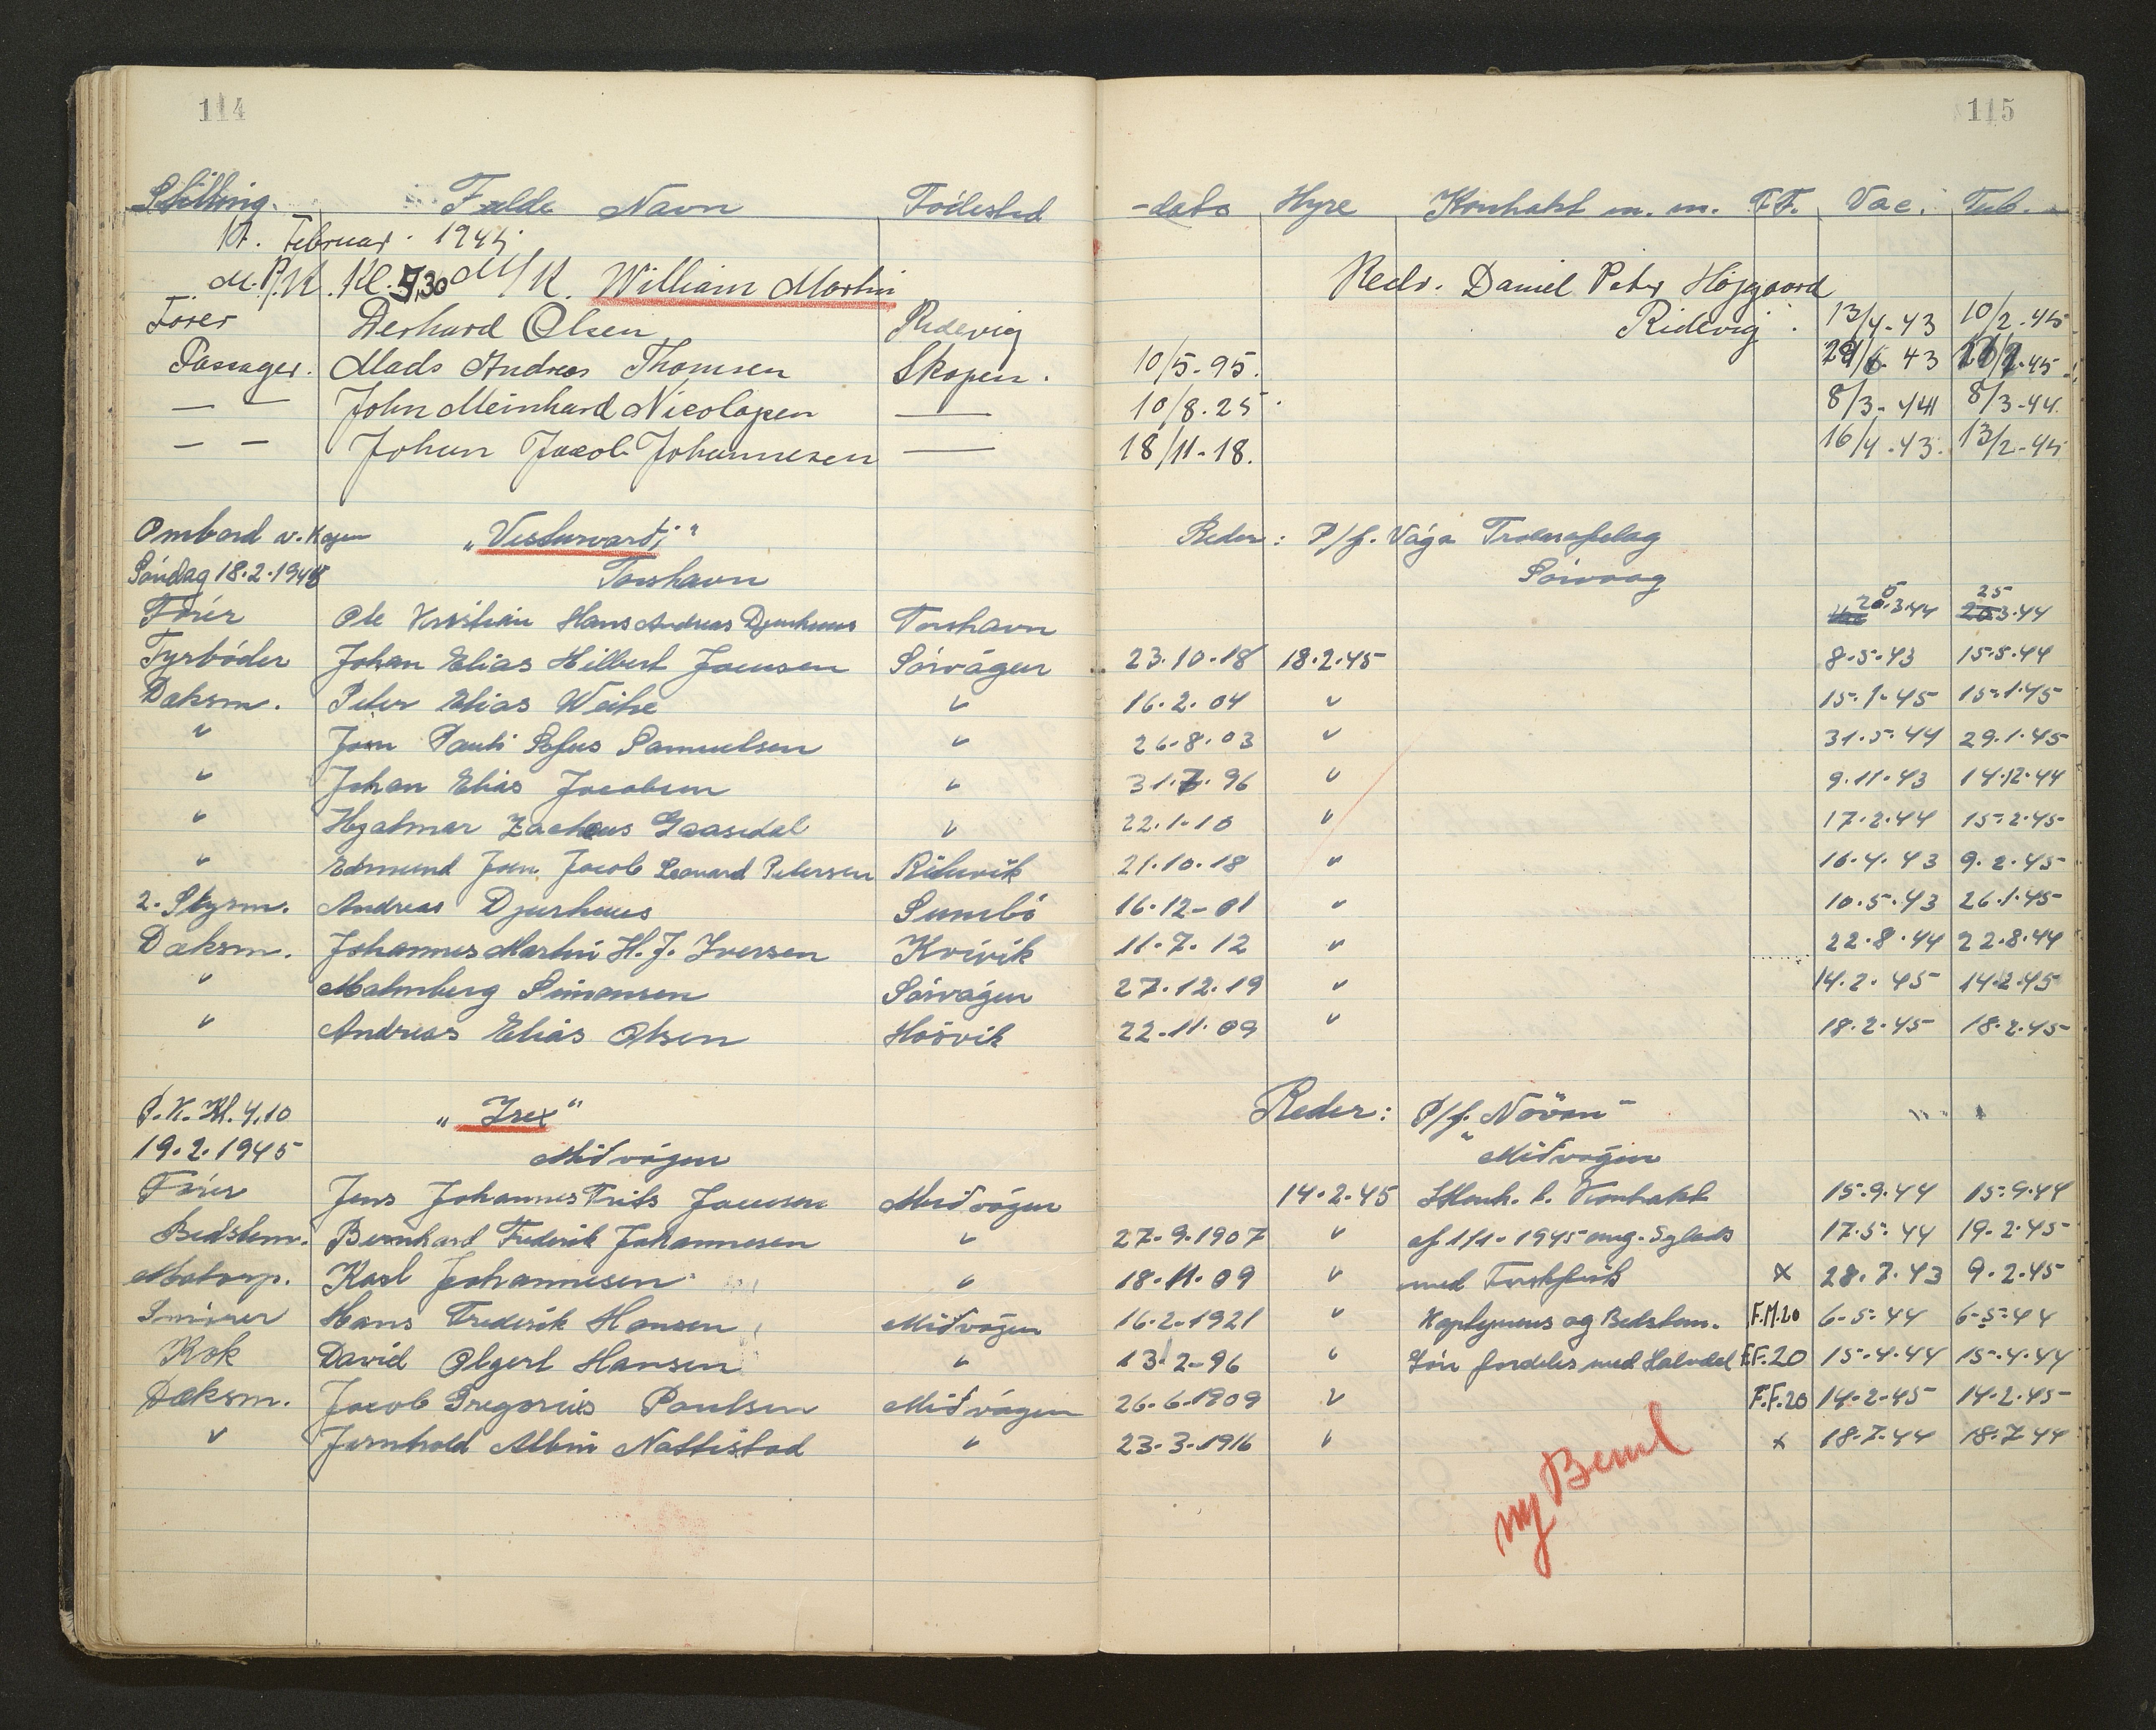 114
115
Stilling. Fulde Navn Födested -dato Hyre Kontrakt m. m. F.F. Vac. Tub.
17. Februar 1945
M.P.K. Kl. 5,30 M/K. William Martin Redr. Daniel Peter Höjgaard
Förer Gerhard Olsen Ridevig Ridevig. 13/4-43 10/2-45
Passager. Mads Andreas Thomsen Skopen. 10/5-95. 43 45
— — John Meinhard Nicolajsen — 10/8.25 8/3-44 8/3-44.
— — Johan Jacob Johannesen — 18/11-18. 16/4-43. 13/2-45
Ombord v. Kajen „Vesturvarði" Reder: P/f. Vága Trolarafelag
Söndag 18.2.1945 Torshavn Sörvaag
Förer Ole Kristian Hans Andreas Djurhuus Torshavn 20.3.44 25 3.44
Fyrböder Johan Elias Hilbert Joensen Sörvágur 23.10.18 18.2.45 8.5.43 15.5.44
Dæksm. Peter Elias Weihe " 16.2.04 " 15.1.45 15.1.45
" Joen Pauli Sofus Samuelsen " 26.8.03 " 31.5.44 29.1.45
" Johan Elias Jacobsen " 31.7.96 " 9.11.43 14.12.44
" Hjalmar Zachæus Gaasedal " 22.1.10 " 17.2.44 15.2.45
" Edmund Joen Jacob Leonard Petersen Ridevik 21.10.18 " 16.4.43 9.2.45
2. Styrm. Andreas Djurhuus Sumbö 16.12-01 " 10.5.43 26.1.45
Dæksm. Johannes Martin H. J. Iversen Kvivik 11.7.12 " 22.8.44 22.8.44
" Malmberg Simonsen Sörvágur 27.12.19 " 14.2.45 14.2.45
" Andreas Elias Olsen Hósvik 22.11.09 " 18.2.45 18.2.45
P.K. Kl. 4,10 „Irex" Reder: P/f. „Növan"
19.2.1945 Miðvágur Miðvágur
Förer Jens Johannes Frits Joensen Miðvágur 14.2.45 Kontrakt 15.9.44 15.9.44
Bedstem. Bernhard Frederik Johannesen " 27.9.1907 " af 1/1-1945 ang. Sejlads 17.5.44 19.2.45
Motorp. Karl Johannesen " 18.11.09 " med x 28.7.43 9.2.45
Smörer Hans Frederik Hansen Miðvágur 16.2.1921 " Kaplejens og Bedstem. F.M.20 6-5-44 6-5-44
Kok David Olgert Hansen " 13.2-96 " Lön fordeles med Halvdel F.F.20 15.4.44 15.4.44
Dæksm. Jacob Gregorius Poulsen Miðvágur 26.6.1909 " F.F.20 14.2.45 14.2.45
" Jernhold Albin Nattestad " 23.3.1916 " x 18.7.44 18.7.44
ny